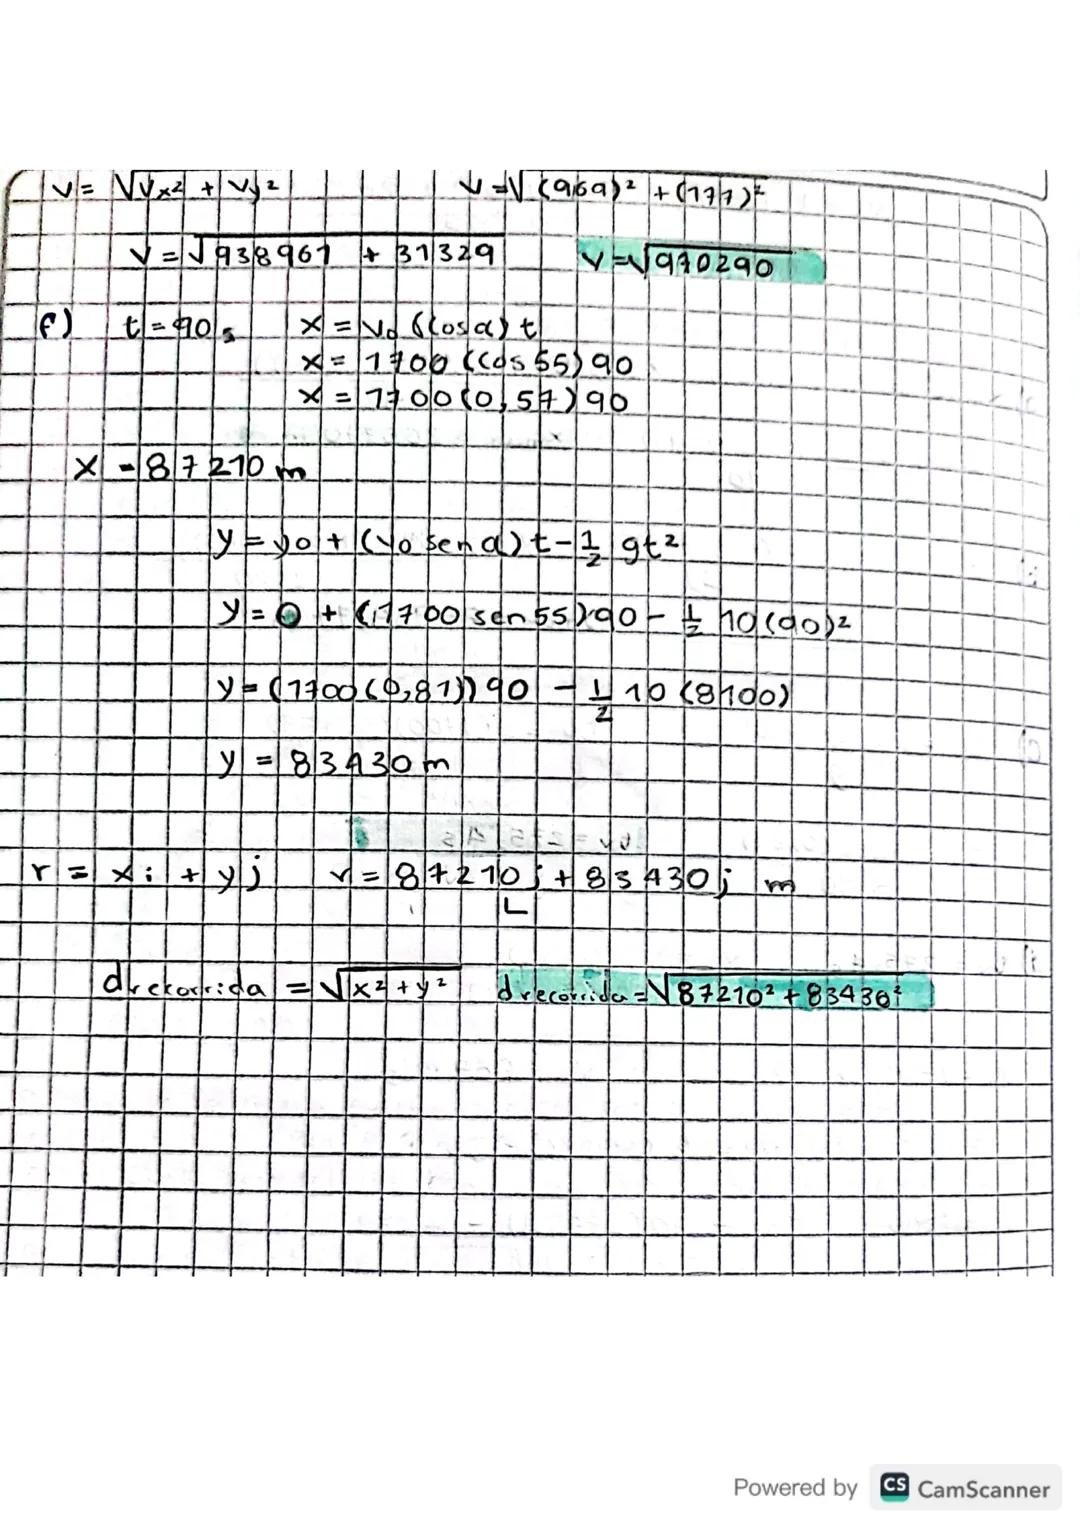 v = √Vx² + Vy² v = √(969)² + (177)²
v = √938961 + 31329 v = √970290
f) t = 90 s x = v₀ (cos α) t
x = 1700 (cos 55) 90
x = 1700 (0,57) 90
x = 87210 m
y = y₀ + (v₀ sen α) t - 1/2 gt²
y = 0 + (1700 sen 55) 90 - 1/2 10 (90)²
y = (1700 (0,81)) 90 - 1/2 10 (8100)
y = 83430 m
r = xi + yj r = 87210 i + 83430 j m
drecorrida = √x² + y² drecorrida = √87210² + 83430²
Powered by CS CamScanner